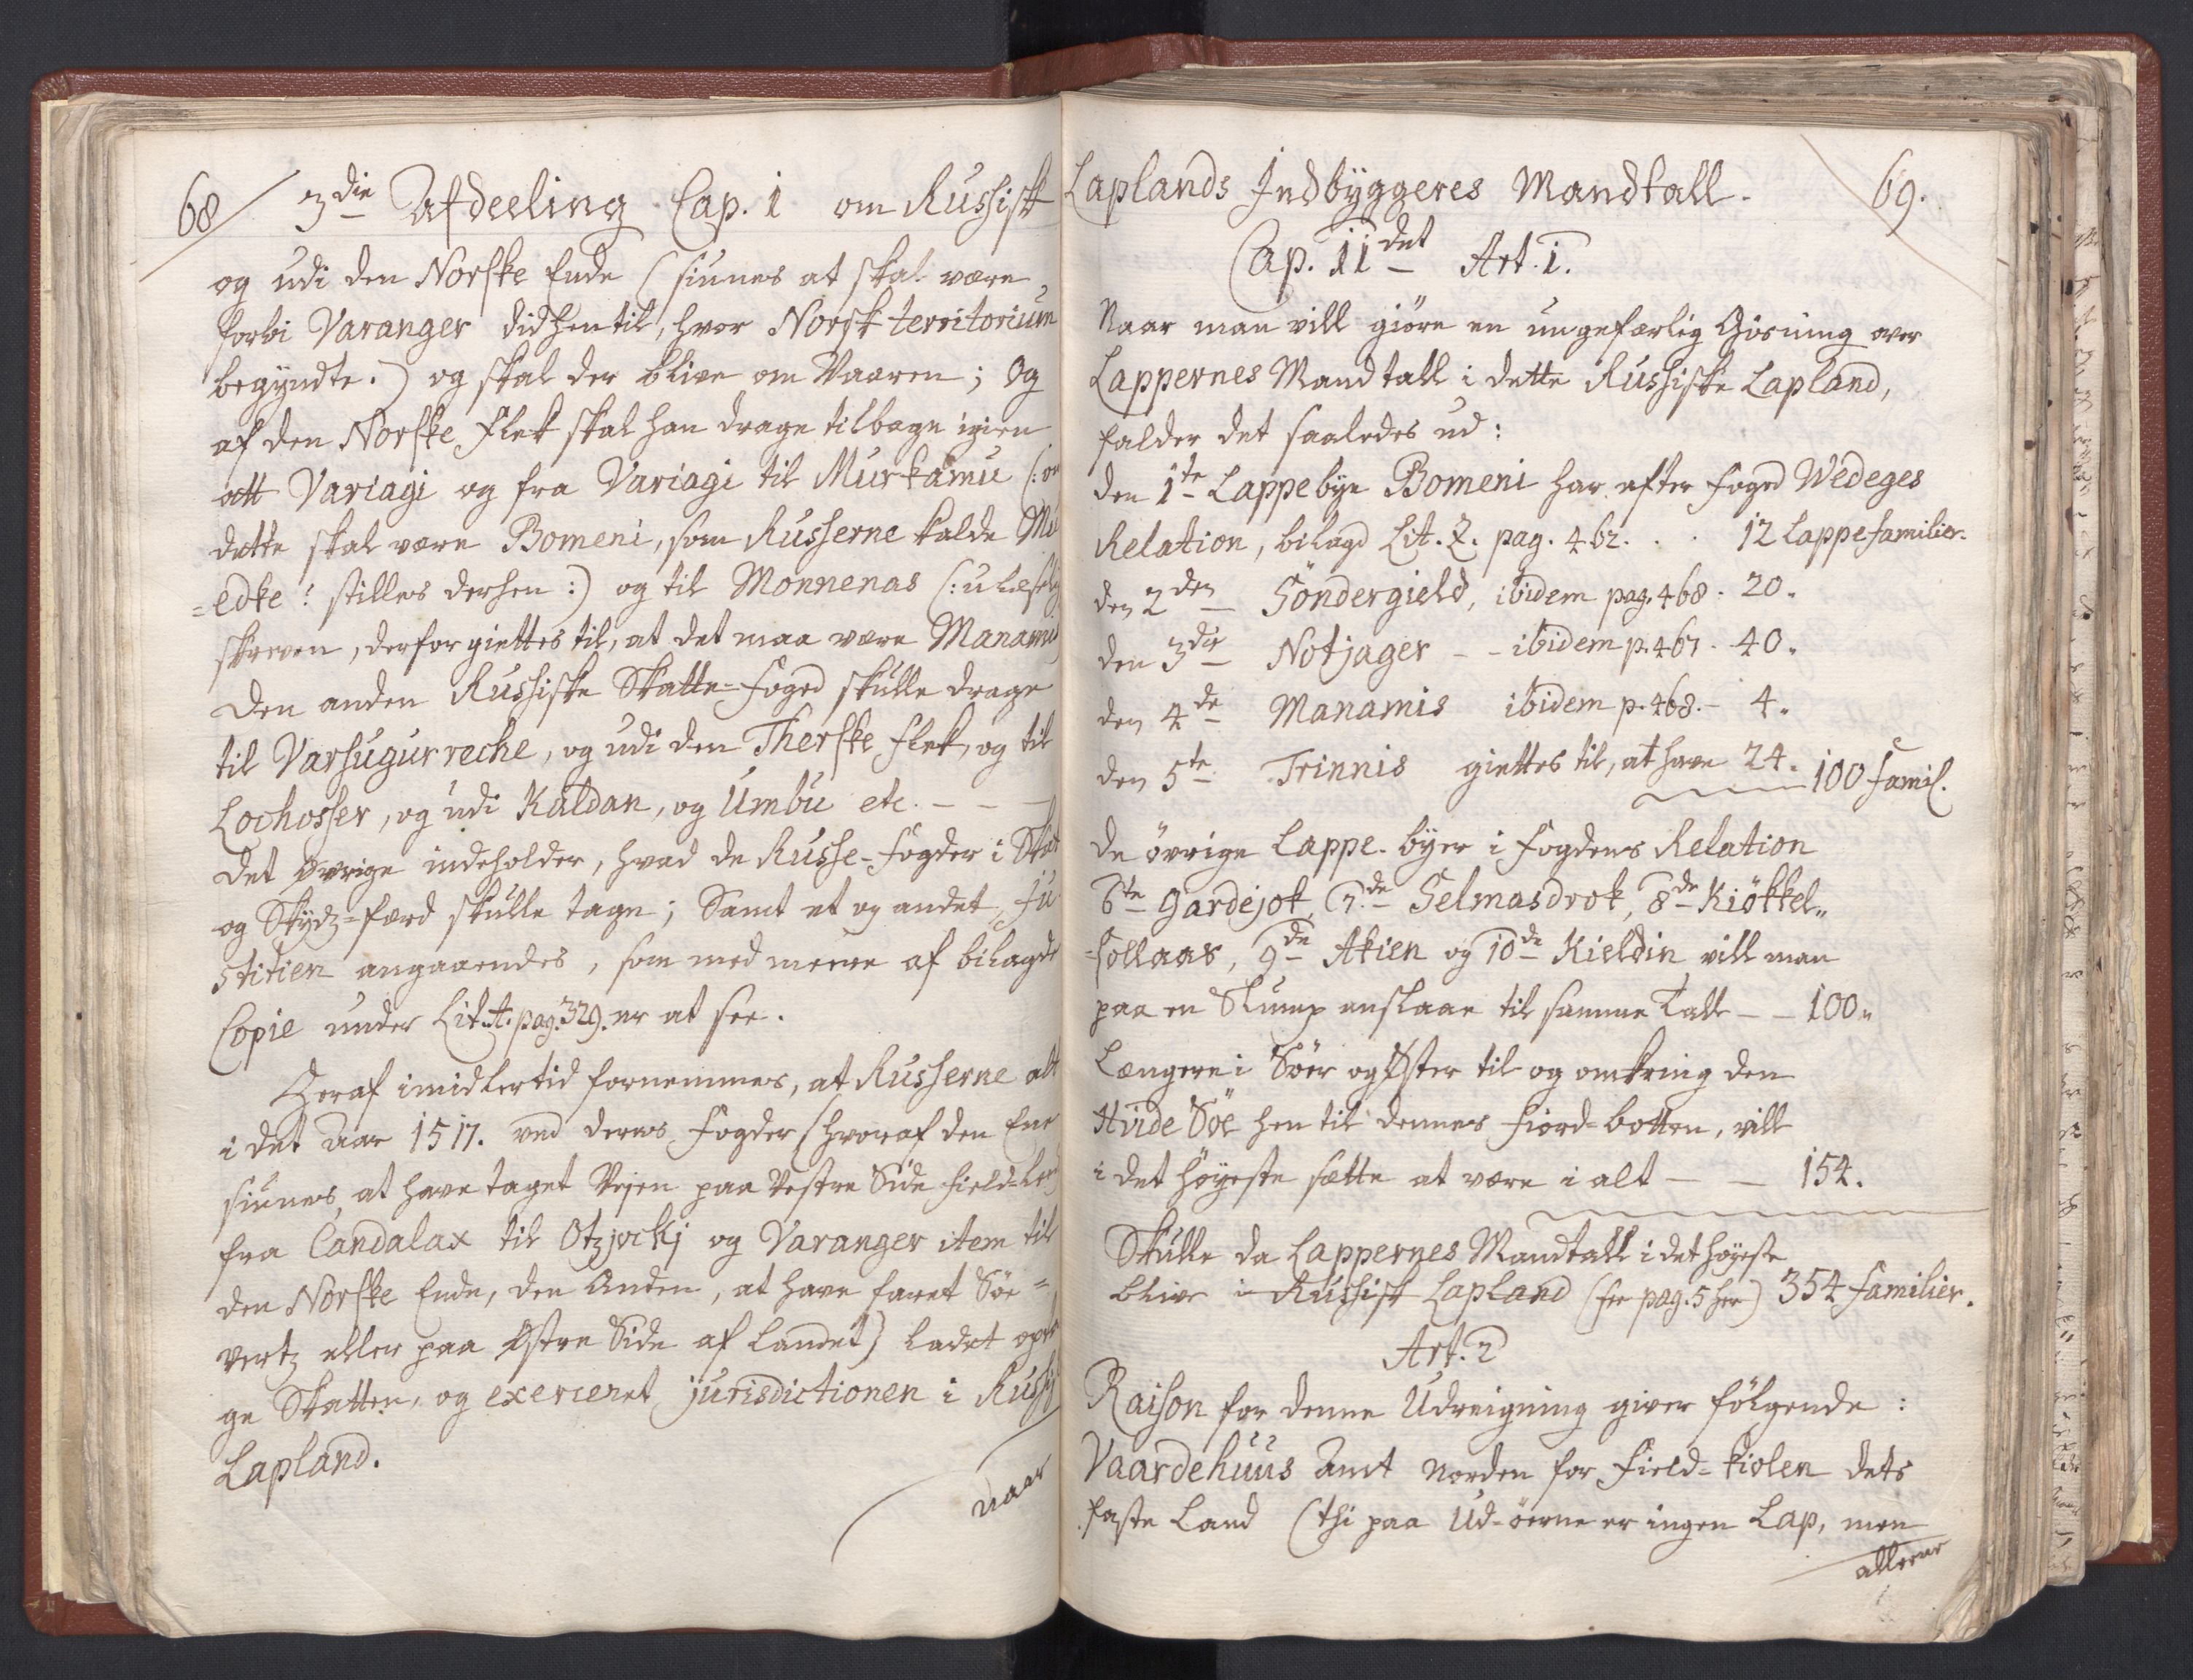 68
3die Afdeeling Cap. 1 om Russisk
og udi den Norske Ende (siunes at skal være
forbi Varanger didhentil, hvor Norsk territorium
begyndte.) og skal der blive om Vaaren; Og
af den Norske Flek skal han drage tilbage igien
att Variagi og fra Variagi til Murkamu (:
dette skal være Bomeni, som Russerne kalde
=edke? stilles derhen:) og til Monnenas (:ulæselig
skreven, derfor giettes til, at det maa være Manamis
Den anden Russiske Skatte=Foged skulle drage
til Varsugurreche, og udi den Therske Flek, og til
Lochosser, og udi Kaldan, og Umbu etc. - - -
Det øvrige indeholder, hvad de Russe-Fogder i Skat
og Skydz=færd skulle tage; Samt et og andet Ju
stitien angaaendes, som med meere af bilagde
Copie under Lit. A. pag. 329. er at see.
Heraf imidlertid fornemmes, at Russerne alt
i det Aar 1517. ved deres Fogder (hvoraf den Ene
siunes, at have taget Vejen paa Vestre Side
fra Candalax til Otzjockj og Varanger item til
den Norske Ende, den Anden, at have faret Sör=
vertz eller paa Østre Side af Landet) ladet
ge Skatten, og exerceret jurisdictionen i Russisk
Lapland.
Naar
Laplands Indbÿggeres Mandtall.
69.
Cap. 11det Art. 1.
Naar man vill giöre en ungefærlig Gisning over
Lappernes Mandtall i dette Russiske Lapland,
falder det saaledes ud:
den 1te Lappebÿe Bomeni har efter Foged Wedeges
Relation, bilagd Lit. Z. pag. 462. . . 12 Lappefamilier.
den 2den Söndergield, ibidem pag. 468. 20.
den 3die Notjager - - ibidem p. 467. 40.
den 4de Manamis ibidem p. 468. - 4.
den 5te Trinnis giettes til, at have 24. 100 Famil.
de övrige Lappe-bÿer i Fogdens Relation
6te Gardejok, 7de Selmasdrok, 8de Kiökkel„
=sollaar, 9de Akien og 10de Kieldin vill man
paa en Slump anslaae til samme Tall - - 100„
Længere i Söer og Øster til og omkring den
Hvide Söe hen til dennes Fiord-botten, vill
i det höÿeste sætte at være i alt - - 154.
Skulle da Lappernes Mandtall i det höÿeste
blive i Russisk Lapland (see pag. 5 her) 354 Familier.
Art. 2
Raison for denne Udreigning giver fölgende:
Vaardehuus Amt Norden for Field-kiolen dets
faste Land (thi paa Ud-öerne er ingen Lap, men
alleene